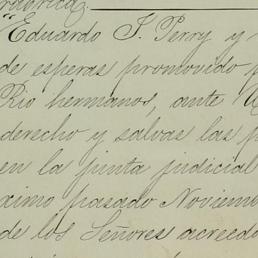 rúbrica.
"Eduardo J. Perry y
de esperas promovido
Rio hermanos, ante
derecho y salvas las
en la junta judicial
ximo pasado Noviem
de los Señores acreedo